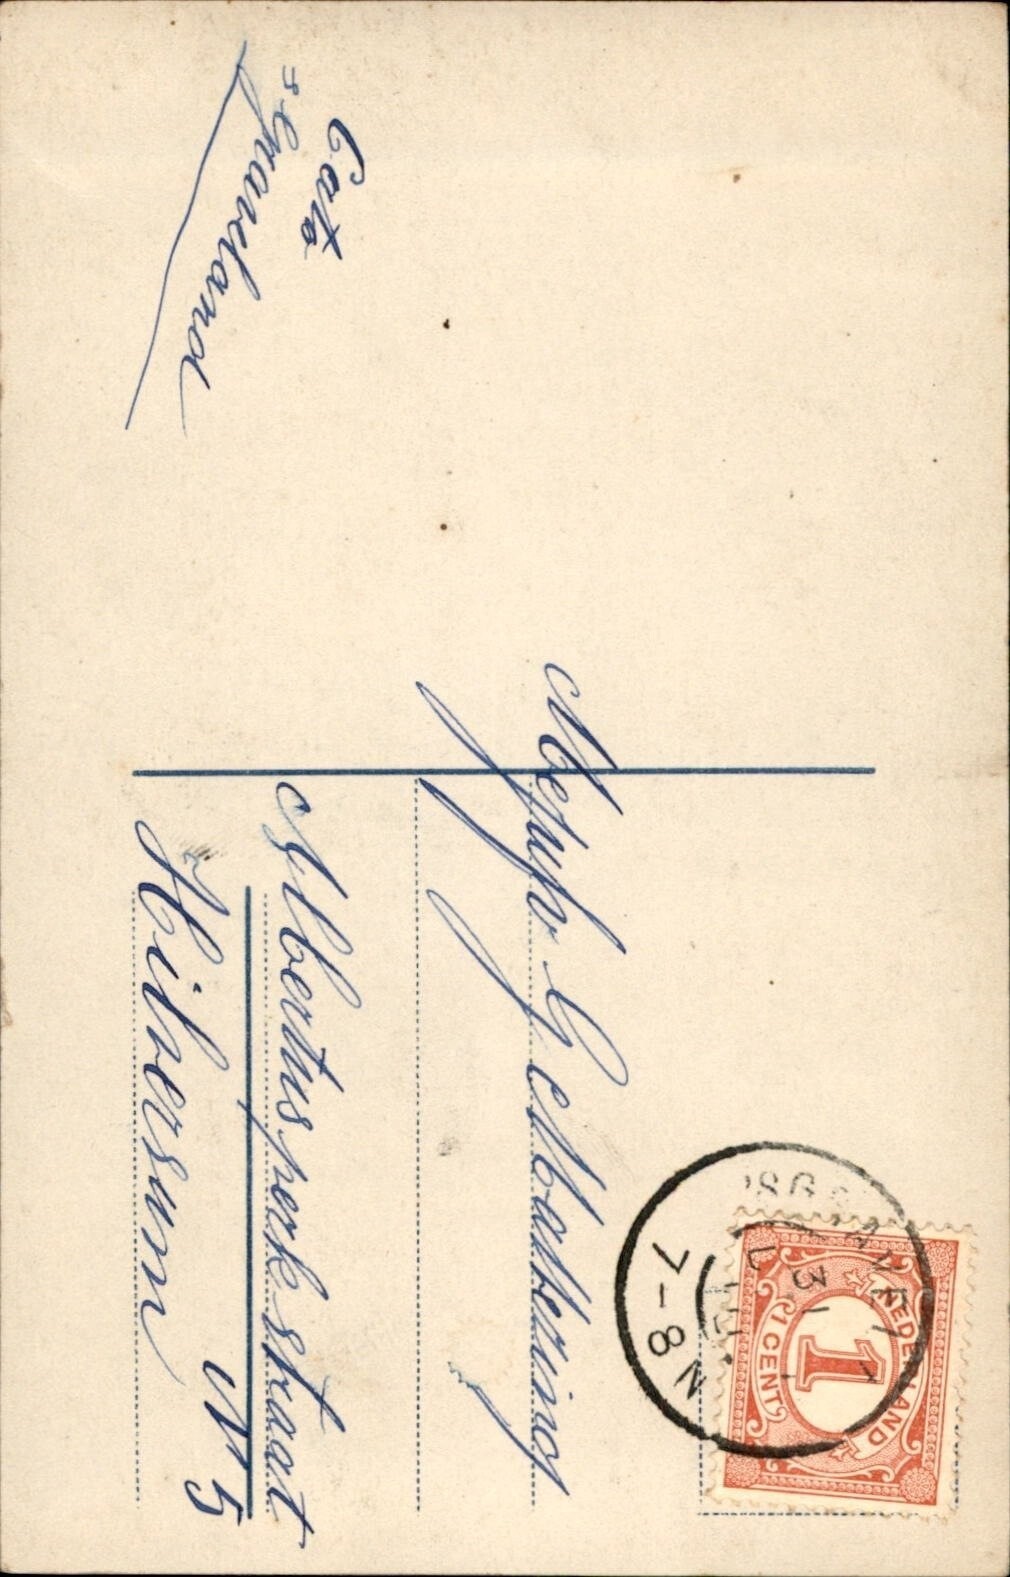 Cato
's Graveland
Mejufv G Malbering
Albertusperkstraat
N 5
Hilversum
NEDERLAND
1
1 CENT
31
7-8 N